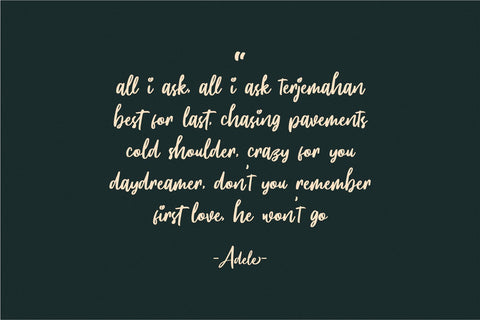 “
all i ask, all i ask terjemahan
best for last, chasing pavements
cold shoulder, crazy for you
daydreamer, don't you remember
first love, he won't go
-Adele-